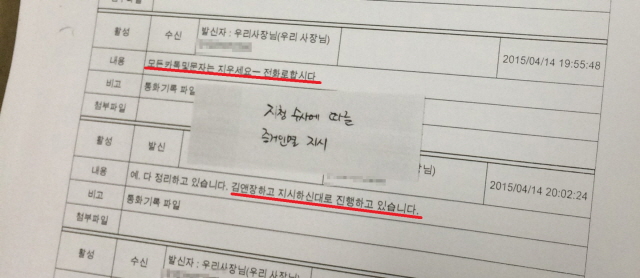 첨부파일
활성
수신
발신자 : 우리사장님(우리 사장님)
2015/04/14 19:55:48
내용
모든카톡및문자는 지우세요ㅡ 전화로합시다
비고
통화기록 파일
첨부파일
지청 수사에 따른
증거인멸 지시
활성
발신
2015/04/14 20:02:24
내용
예. 다 정리하고 있습니다. 김앤장하고 지시하신대로 진행하고 있습니다.
비고
통화기록 파일
첨부파일
활성
수신
발신자 : 우리사장님(우리 사장님)